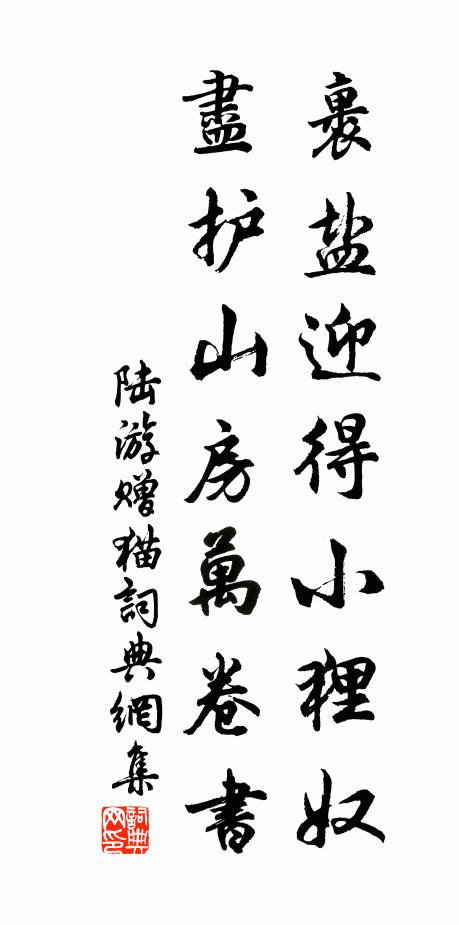 裹盐迎得小裡奴
盡护山房萬卷書
陆游赠猫詞典網集
詞典网印